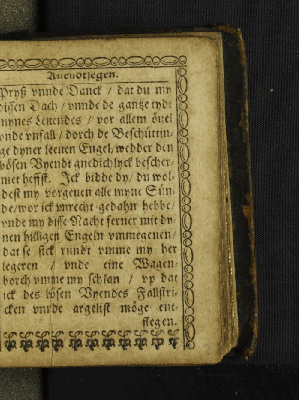 Avendtsegen.
Pryß vnnde Danck / dat du my
dissen Dach / vnnde de gantze tydt
mynes Levendes / vor allem övel
vnde vnfall / dorch de Beschüttin-
ge dyner leeven Engel, wedder den
bösen Vyendt gnedichlyck bescher-
met heffst. Ick bidde dy / du wol-
dest my vorgeven alle myne Sün-
de / wor ick vnrecht gedahn hebbe /
vnde my disse Nacht ferner mit dy-
nen hilligen Engeln vmmegeven /
dat se sick rundt vmme my her
legeren / vnde eine Wagen-
borch vmme my schlan / vp dat
ick des bösen Vyendes Fallstri-
cken vnde argelist möge ent-
flegen.